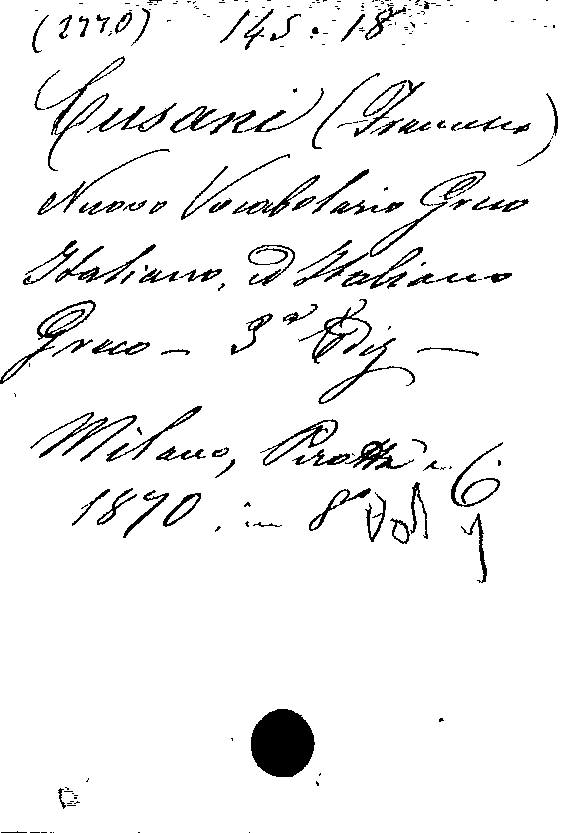 (2770) 145.18
Cusani (Francesco)
Nuovo Vocabolario Greco
Italiano, ed Italiano
Greco – 3ª Ediz –
Milano, Pirotta e C.
1870. in 8º Vol 1